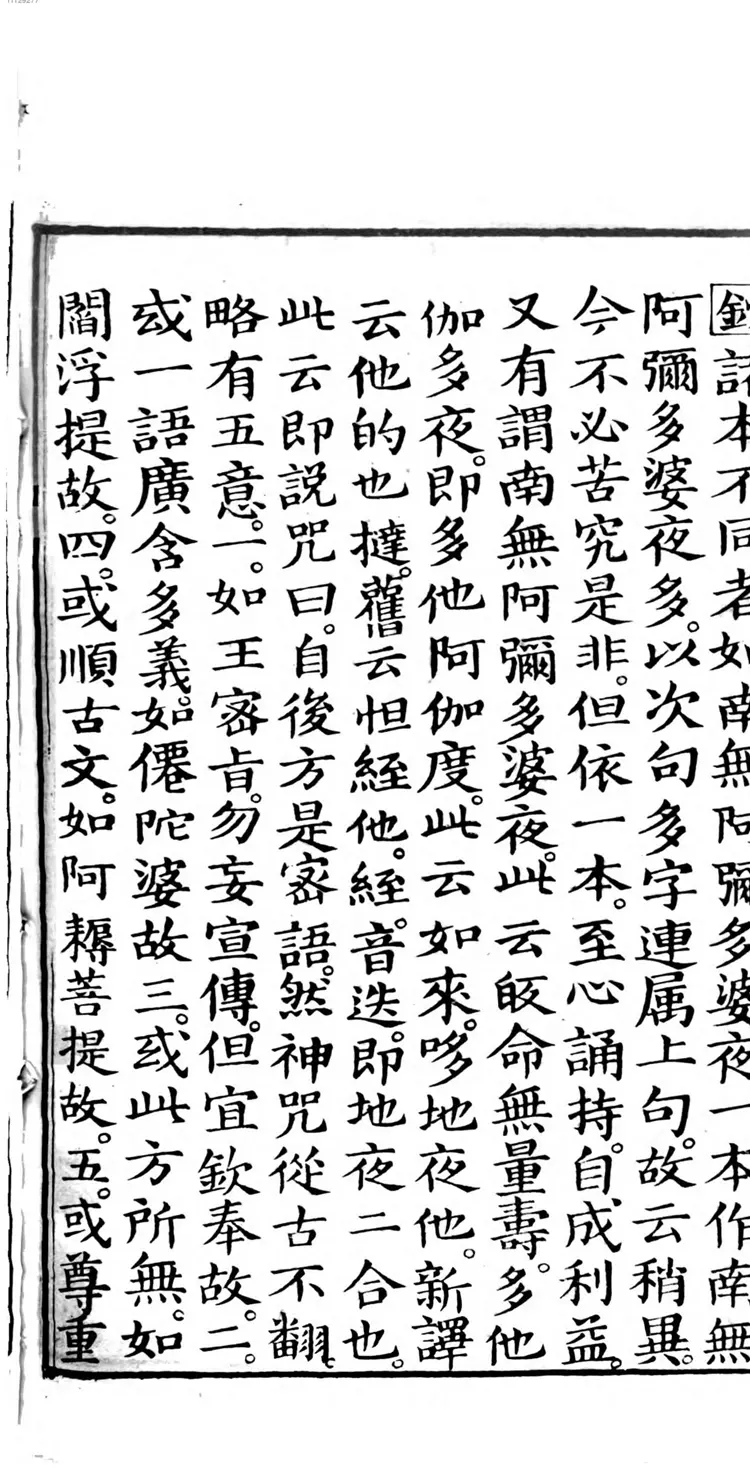 鈔諸本不同者如南無阿彌多婆夜一本作南無
阿彌多婆夜多。以次句多字連属上句。故云稍異。
今不必苦究是非。但依一本。至心誦持。自成利益。
又有謂南無阿彌多婆夜。此云皈命無量壽。多他
伽多夜。即多他阿伽度。此云如來。哆地夜他。新譯
云他的也撻。舊云怛絰他。絰。音迭。即地夜二合也。
此云即説咒曰。自後方是密語。然神咒從古不翻。
略有五意。一。如王密旨。勿妄宣傳。但宜欽奉故。二。
或一語廣含多義。如僊陀婆故三。或此方所無。如
閻浮提故。四。或順古文。如阿耨菩提故。五。或尊重